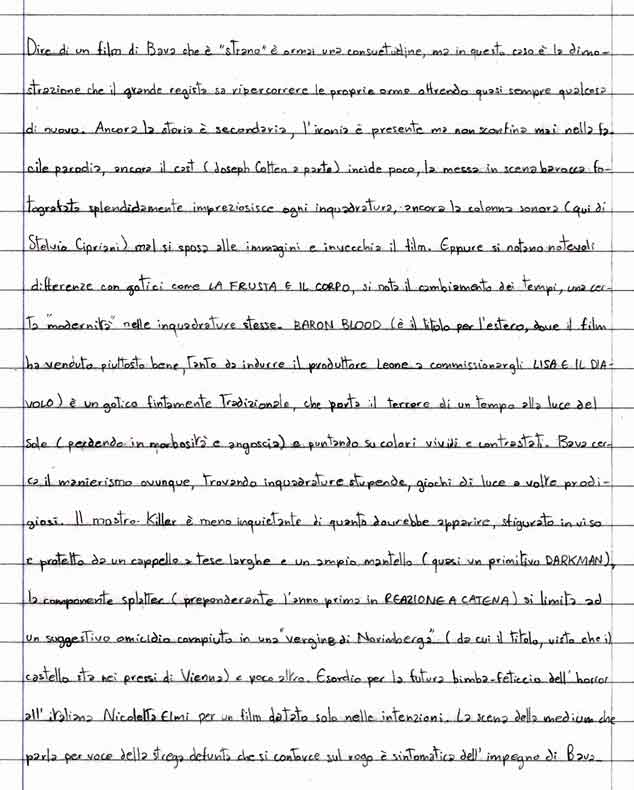 Dire di un film di Bava che è "strano" è ormai una consuetudine, ma in questo caso è la dimo-
strazione che il grande regista sa ripercorrere le proprie orme offrendo quasi sempre qualcosa
di nuovo. Ancora la storia è secondaria, l'ironia è presente ma non sconfina mai nella fa-
cile parodia, ancora il cast (Joseph Cotten a parte) incide poco, la messa in scena barocca fo-
tografata splendidamente impreziosisce ogni inquadratura, ancora la colonna sonora (qui di
Stelvio Cipriani) mal si sposa alle immagini e invecchia il film. Eppure si notano notevoli
differenze con gotici come LA FRUSTA E IL CORPO, si nota il cambiamento dei tempi, una cer-
ta "modernità" nelle inquadrature stesse. BARON BLOOD (è il titolo per l'estero, dove il film
ha venduto piuttosto bene, tanto da indurre il produttore Leone a commissionargli LISA E IL DIA-
VOLO) è un gotico fintamente tradizionale, che porta il terrore di un tempo alla luce del
sole (perdendo in morbosità e angoscia) e puntando su colori vividi e contrastati. Bava cer-
ca il manierismo ovunque, trovando inquadrature stupende, giochi di luce a volte prodi-
giosi. Il mostro-killer è meno inquietante di quanto dovrebbe apparire, sfigurato in viso
e protetto da un cappello a tese larghe e un ampio mantello (quasi un primitivo DARKMAN),
la componente splatter (preponderante l'anno prima in REAZIONE A CATENA) si limita ad
un suggestivo omicidio compiuto in una "vergine di Norimberga" (da cui il titolo, visto che il
castello sta nei pressi di Vienna) e poco altro. Esordio per la futura bimba-feticcio dell'horror
all'italiana Nicoletta Elmi per un film datato solo nelle intenzioni. La scena della medium che
parla per voce della strega defunta che si contorce sul rogo è sintomatica dell'impegno di Bava.